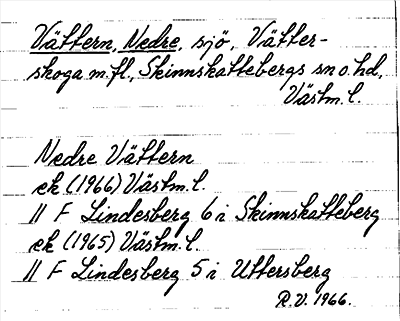 Vättern, Nedre, sjö, Vätter-
skoga m.fl., Skinnskattebergs sn o. hd,
Västm. l.
Nedre Vättern
ek (1966) Västm. l.
// F Lindesberg 6 i Skinnskatteberg
ek (1965) Västm. l.
// F Lindesberg 5 i Uttersberg
R.V. 1966.